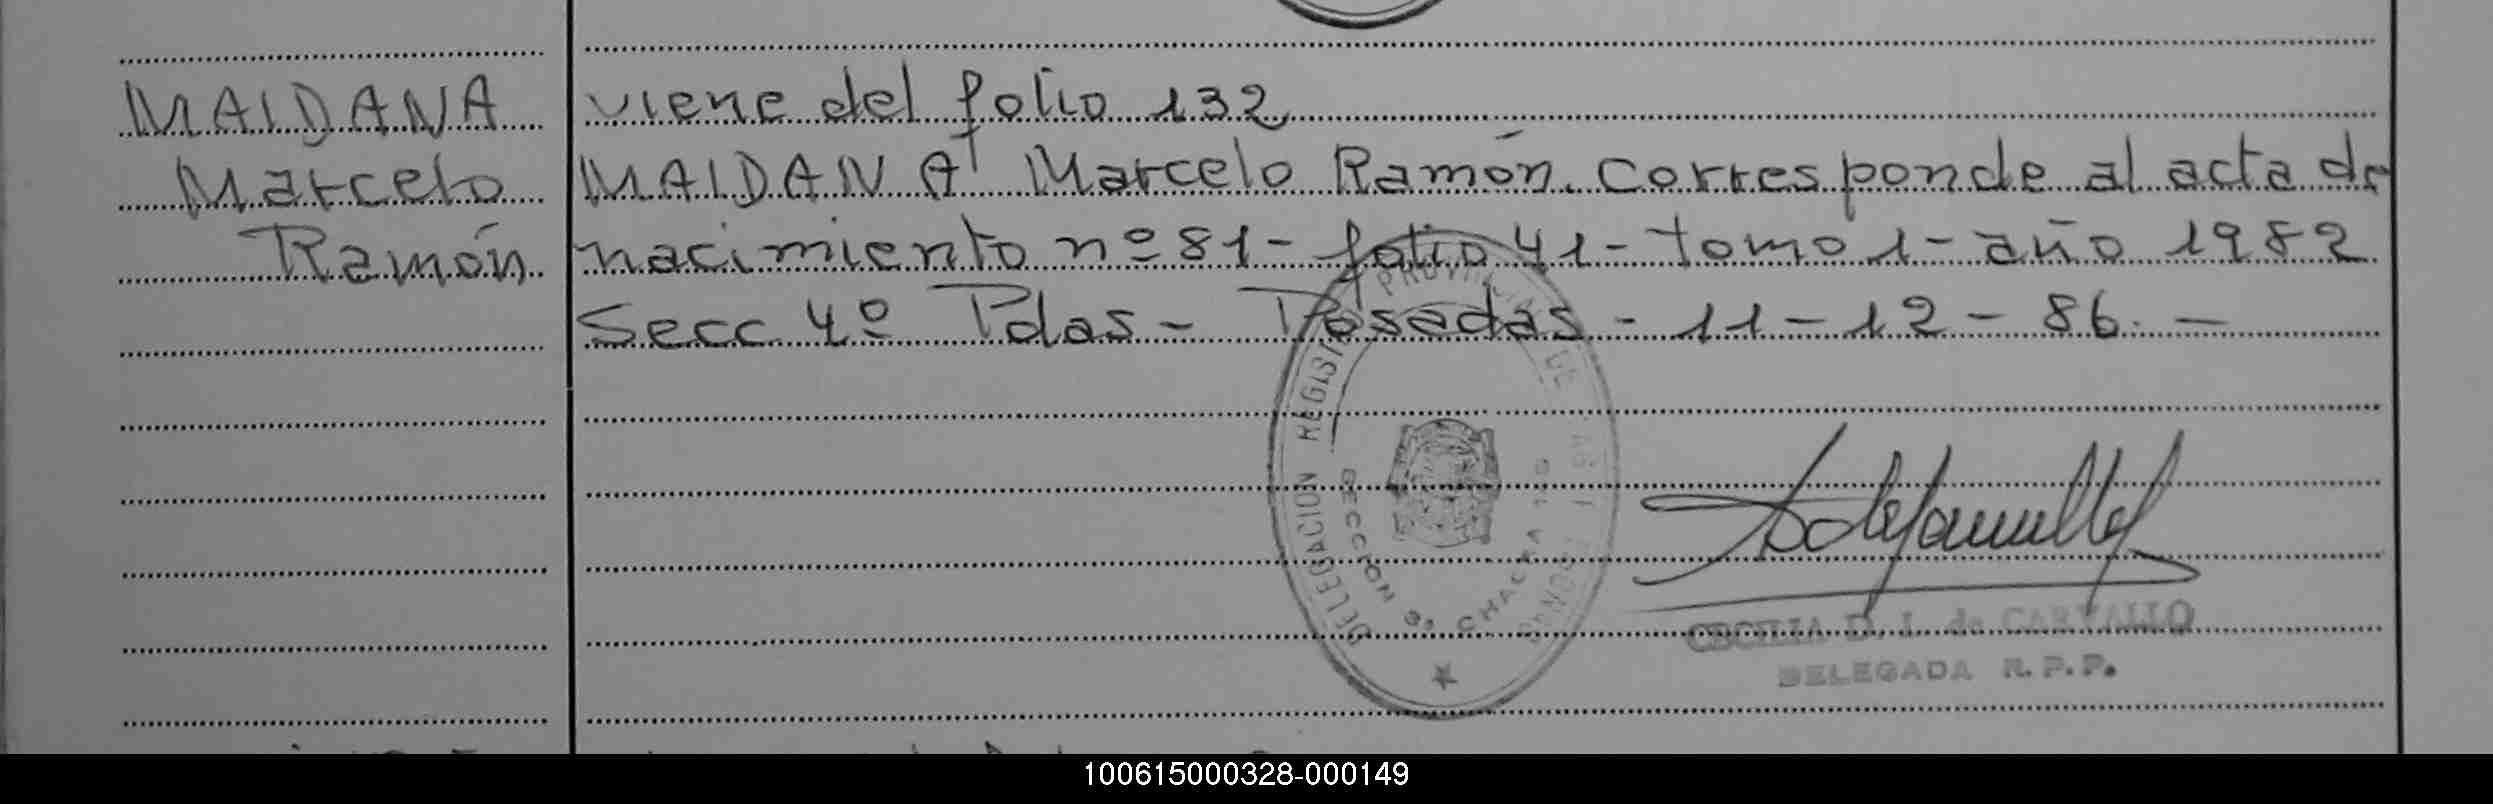 MAIDANA
Marcelo
Ramón
viene del folio 132
MAIDANA Marcelo Ramón. Corresponde al acta de
nacimiento nº 81- folio 41- tomo 1- año 1982
Secc 4º Pdas - Posadas - 11-12-86. -
DELEGACION REGISTRO PROVINCIAL DE LAS PERSONAS
SECCION CHACRA
CECILIA D. I. de CARVALLO
DELEGADA R. P. P.
100615000328-000149